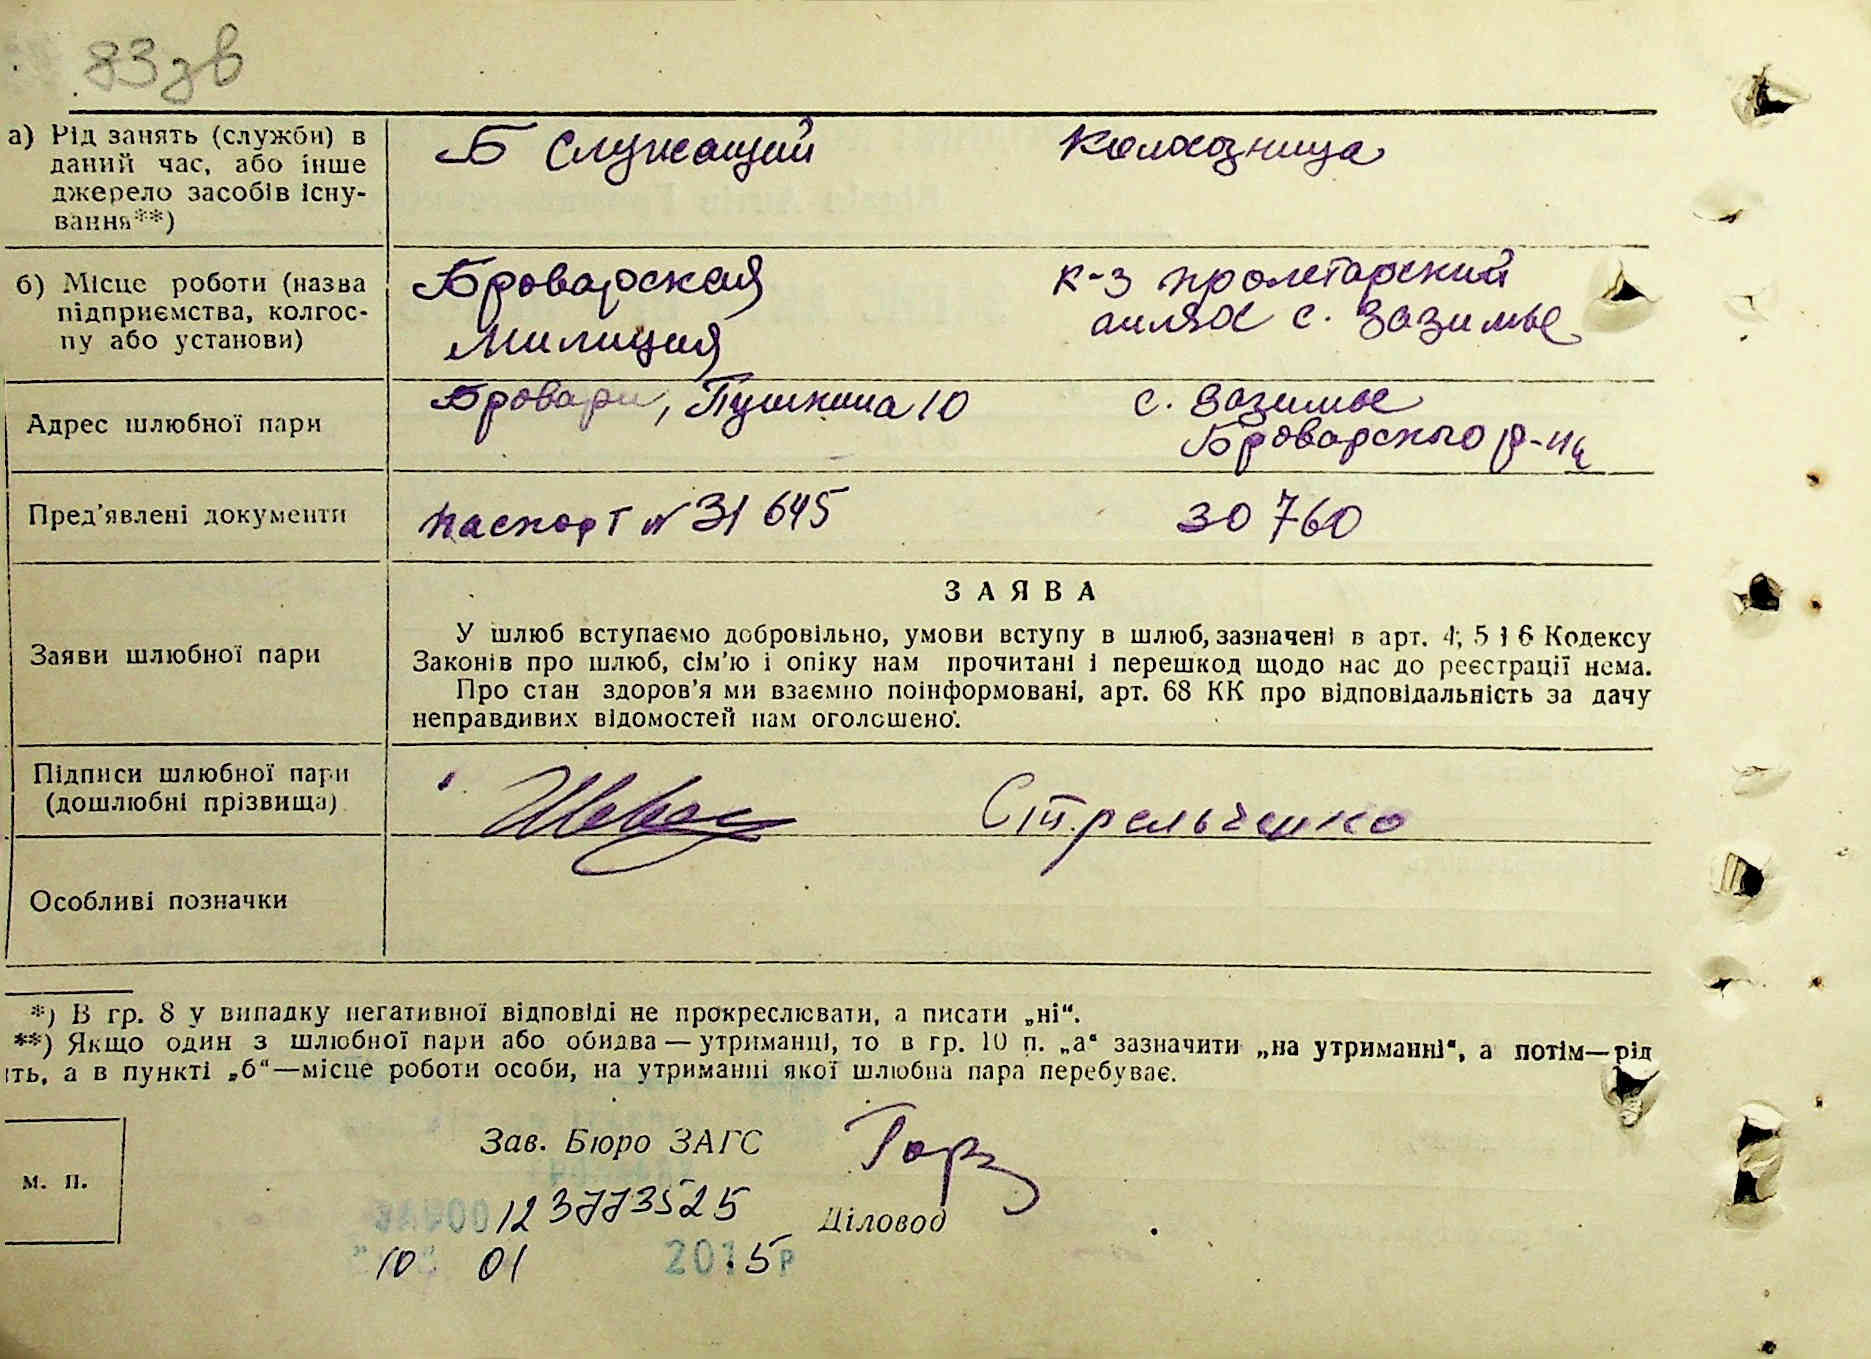 83зв
а) Рід занять (служби) в даний час, або інше джерело засобів існу-вання**)
Б Служащий
Колхозница
б) Місце роботи (назва підприємства, колгос-пу або установи)
Броварская
Милиция
к-з пролетарский
шлях с. Зазимье
Адрес шлюбної пари
Бровари, Пушкина 10
с. Зазимье
Броварского р-на
Пред'явлені документи
паспорт № 31 645
30 760
Заяви шлюбної пари
ЗАЯВА
У шлюб вступаємо добровільно, умови вступу в шлюб, зазначені в арт. 4, 5 і 6 Кодексу
Законів про шлюб, сім'ю і опіку нам прочитані і перешкод щодо нас до реєстрації нема.
Про стан здоров'я ми взаємно поінформовані, арт. 68 КК про відповідальність за дачу
неправдивих відомостей нам оголошено.
Підписи шлюбної пари
(дошлюбні прізвища)
Стрельченко
Особливі позначки
*) В гр. 8 у випадку негативної відповіді не прокреслювати, а писати „ні“.
**) Якщо один з шлюбної пари або обидва — утриманці, то в гр. 10 п. „а“ зазначити „на утриманні“, а потім—рід
ть, а в пункті „б“—місце роботи особи, на утриманні якої шлюбна пара перебуває.
Зав. Бюро ЗАГС
м. п.
Діловод
10 01 2015р